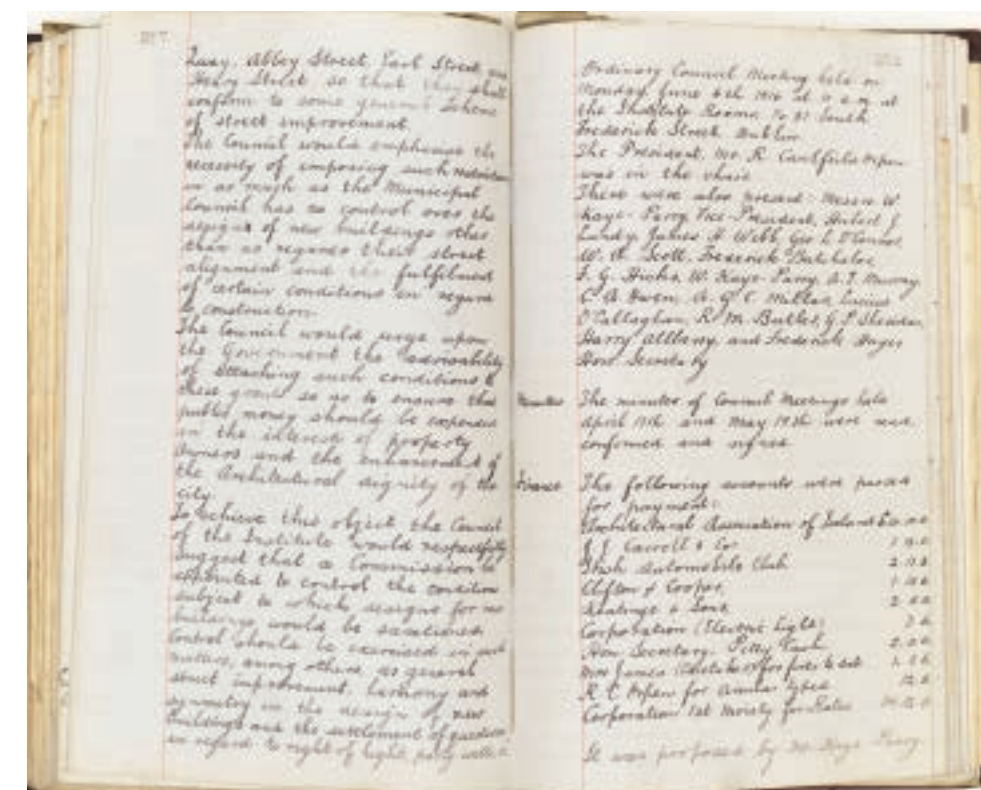 217.
Quay, Abbey Street, Earl Street and
Henry Street so that they shall
conform to some general scheme
of street improvement.
The Council would emphasise the
necessity of imposing such
in as much as the Municipal
Council has no control over the
design of new buildings other
than as regards their street
alignment and the fulfilment
of certain conditions in regard
to construction.
The Council would urge upon
the Government the advisability
of attaching such conditions to
these grants so as to ensure that
public money should be expended
in the interest of property
owners and the enhancement of
the Architectural dignity of the
city.
To achieve this object the Council
of the Institute would respectfully
suggest that a Commission be
appointed to control the conditions
subject to which designs for new
buildings would be sanctioned
Control should be exercised in such
matters, among others, as general
street improvement, harmony and
symmetry in the design of new
buildings and the settlement of questions
in regard to right of light, party walls &
Ordinary Council Meeting held on
Monday June 5th 1916 at at
the Institute Rooms, No 31 South
Frederick Street Dublin
The President, Mr. R. Caulfield Orpen
was in the chair
There were also present: Messrs W.
Kaye-Parry Vice-President, Albert J.
Lundy, James H. Webb, Geo L O'Connor,
W. A. Scott, Frederick Batchelor,
F. G. Hicks, W. Kaye-Parry, A. T. Murray
C. A. Owen, A. G. C. Millar, Lucius
O'Callaghan, R. M. Butler, G. P. Sheridan,
Harry Allberry and Frederick Hayes
Hon. Secretary
Minutes The minutes of Council Meetings held
April 17th and May 19th were read
confirmed and signed
Finance The following accounts were passed
for payment:
Architectural Association of Ireland
J. J. Carroll & Co
Irish Automobile Club
Clifton & Cooper
Keatinge & Sons
Corporation (Electric Light)
Hon Secretary Petty Cash
Mrs James
R. C. Orpen for
Corporation 1st Moiety for Rates
It was proposed by Mr. Kaye Parry